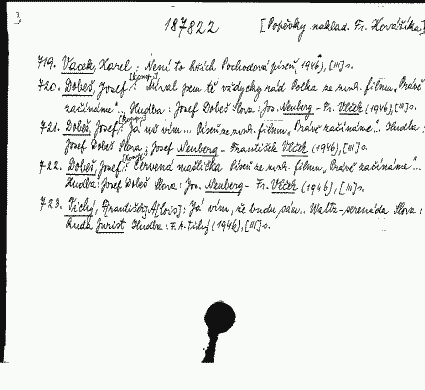 187822 [Popěvky naklad. Fr. Kovářík.]
719. Vacek, Karel: Není to hřích Pochodová píseň (1946), [III]s.
720. Dobeš, Josef [komp.]: Míval jsem tě vždycky rád Polka ze zvuk. filmu „Právě
začínáme"... Hudba: Josef Dobeš Slova: Jos. Neuberg - Fr. Vlček (1946), [III]s.
721. Dobeš, Josef [komp.]: Já už vím... Píseň ze zvuk. filmu „Právě začínáme"... Hudba:
Josef Dobeš Slova: Josef Neuberg - František Vlček (1946), [III]s.
722. Dobeš, Josef [komp.]: Červená mašlička Píseň ze zvuk. filmu „Právě začínáme"...
Hudba: Josef Dobeš Slova: Jos. Neuberg - Fr. Vlček (1946), [III]s.
723. Tichý, František A[lois]: Já vím, že budu sám.. Waltz-serenáda Slova:
Ruda Jurist Hudba: F. A. Tichý (1946), [III]s.